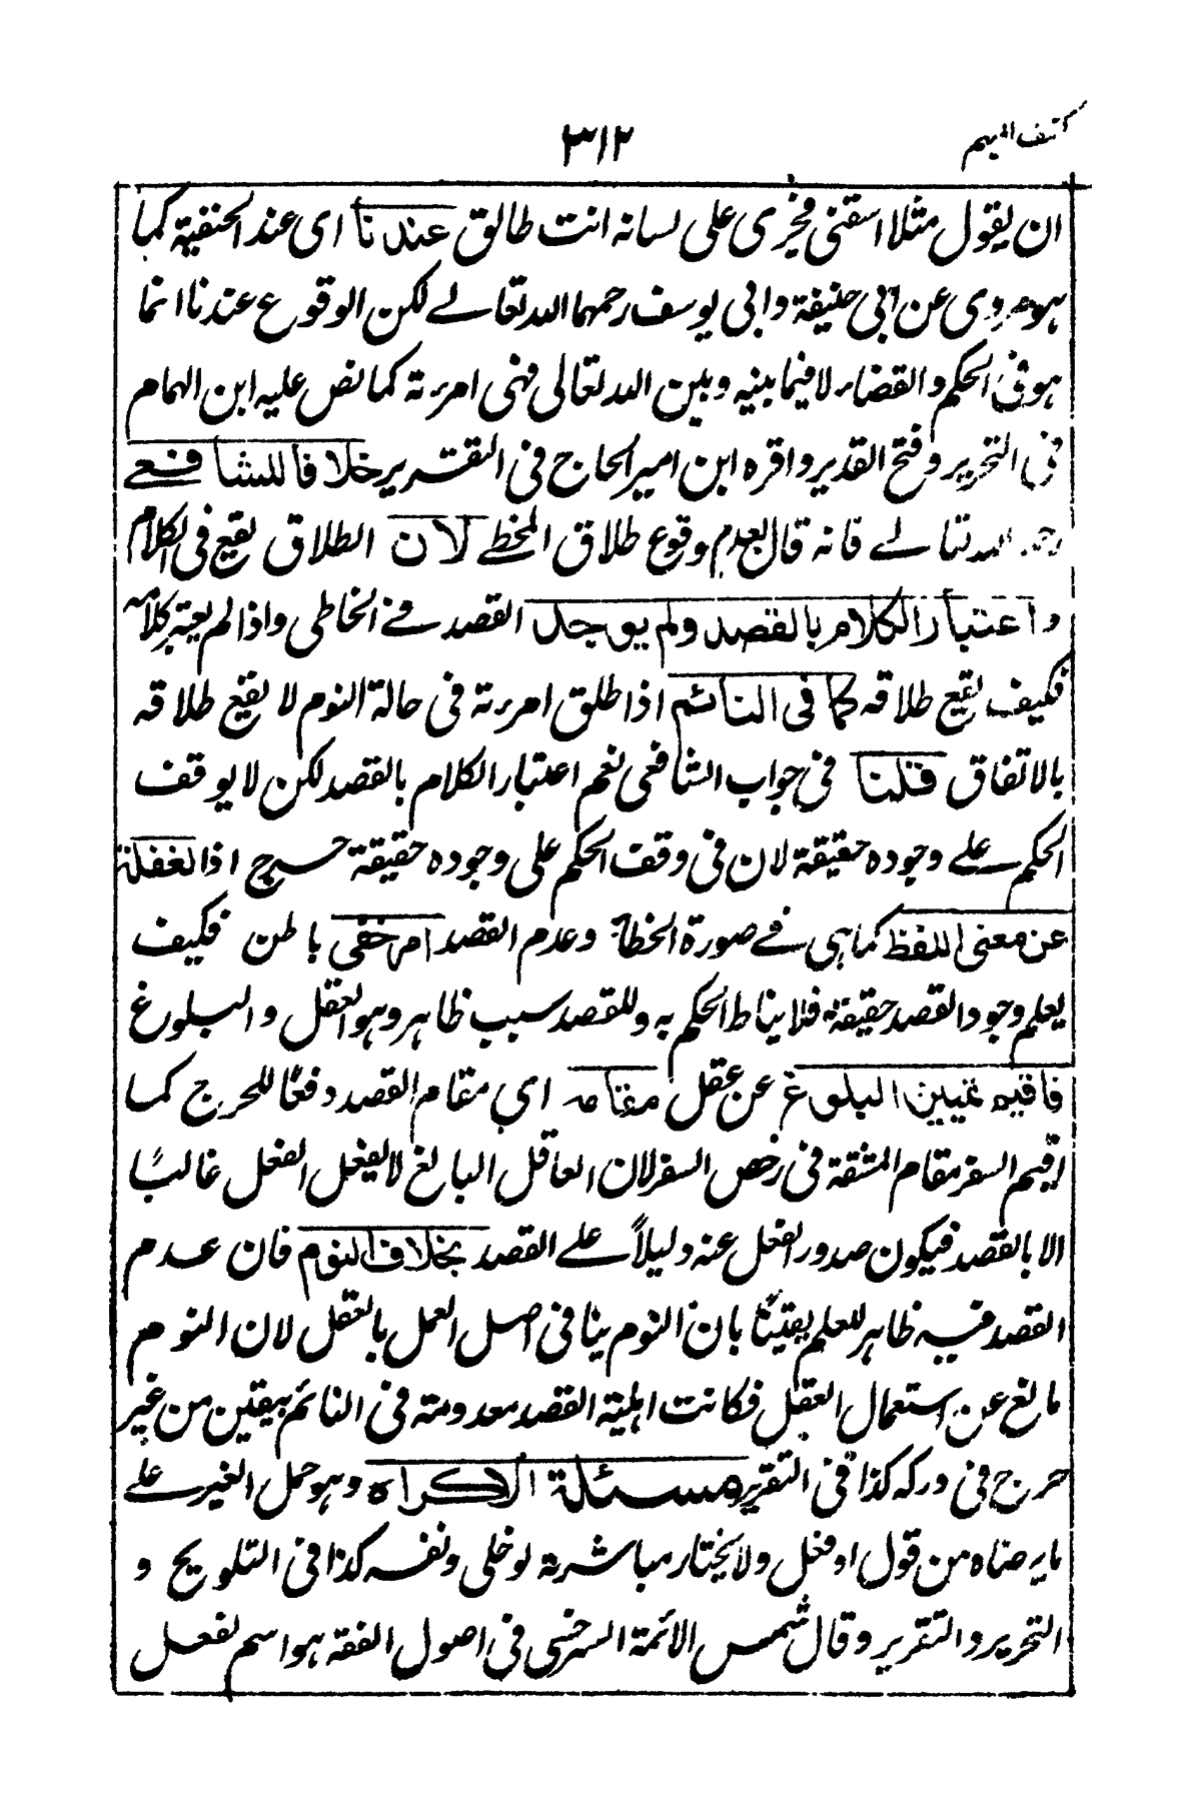 كشف المبهم
٣١٢
ان يقول مثلا اسقنى فجرى على لسانه انت طالق عندنا اى عند الحنفية كما
هو مروى عن ابى حنيفة وابى يوسف رحمهما الله تعالے لكن الوقوع عندنا انما
هو فى الحكم والقضاء لا فيما بينه وبين الله تعالى فهى امرءته كما نص عليه ابن الهمام
فى التحرير وفتح القدير واقره ابن امير الحاج فى التقرير خلافا للشافعے
رحمه الله تعالے فانه قال بعدم وقوع طلاق المخطے لان الطلاق يقع فى الكلام
واعتبار الكلام بالقصد ولم يوجد القصد فے الخاطى واذا لم يعتبر كلامه
فكيف يقع طلاقه كما فى النائم اذا طلق امرءته فى حالة النوم لا يقع طلاقه
بالاتفاق قلنا فى جواب الشافعى نعم اعتبار الكلام بالقصد لكن لا يوقف
الحكم علے وجوده حقيقة لان فى وقف الحكم على وجوده حقيقة حرج اذ الغفلة
عن معنى اللفظ كما هى فے صورة الخطأ وعدم القصد امر خفى باطن فكيف
يعلم وجود القصد حقيقة فلا يناط الحكم به وللقصد سبب ظاهر وهو العقل والبلوغ
فاقيم تميين البلوغ عن عقل مقامه اى مقام القصد دفعًا للحرج كما
اقيم السفر مقام المشقة فى رخص السفر لان العاقل البالغ لا يفعل الفعل غالبًا
الا بالقصد فيكون صدور الفعل عنه دليلاً علے القصد بخلاف النوم فان عدم
القصد فيه ظاهر للعلم يقينًا بان النوم ينافى اصل العمل بالعقل لان النوم
مانع عن استعمال العقل فكانت اهلية القصد معدومة فى النائم بيقين من غير
حرج فى دركه كذا فى التقرير مسئلة الاكراه وهو حمل الغير علے
ما يرضاه من قول او فعل ولا يختار مباشرته لو خلى ونفسه كذا فى التلويح و
التحرير والتقرير وقال شمس الائمة السرخسى فى اصول الفقه هو اسم لفعل